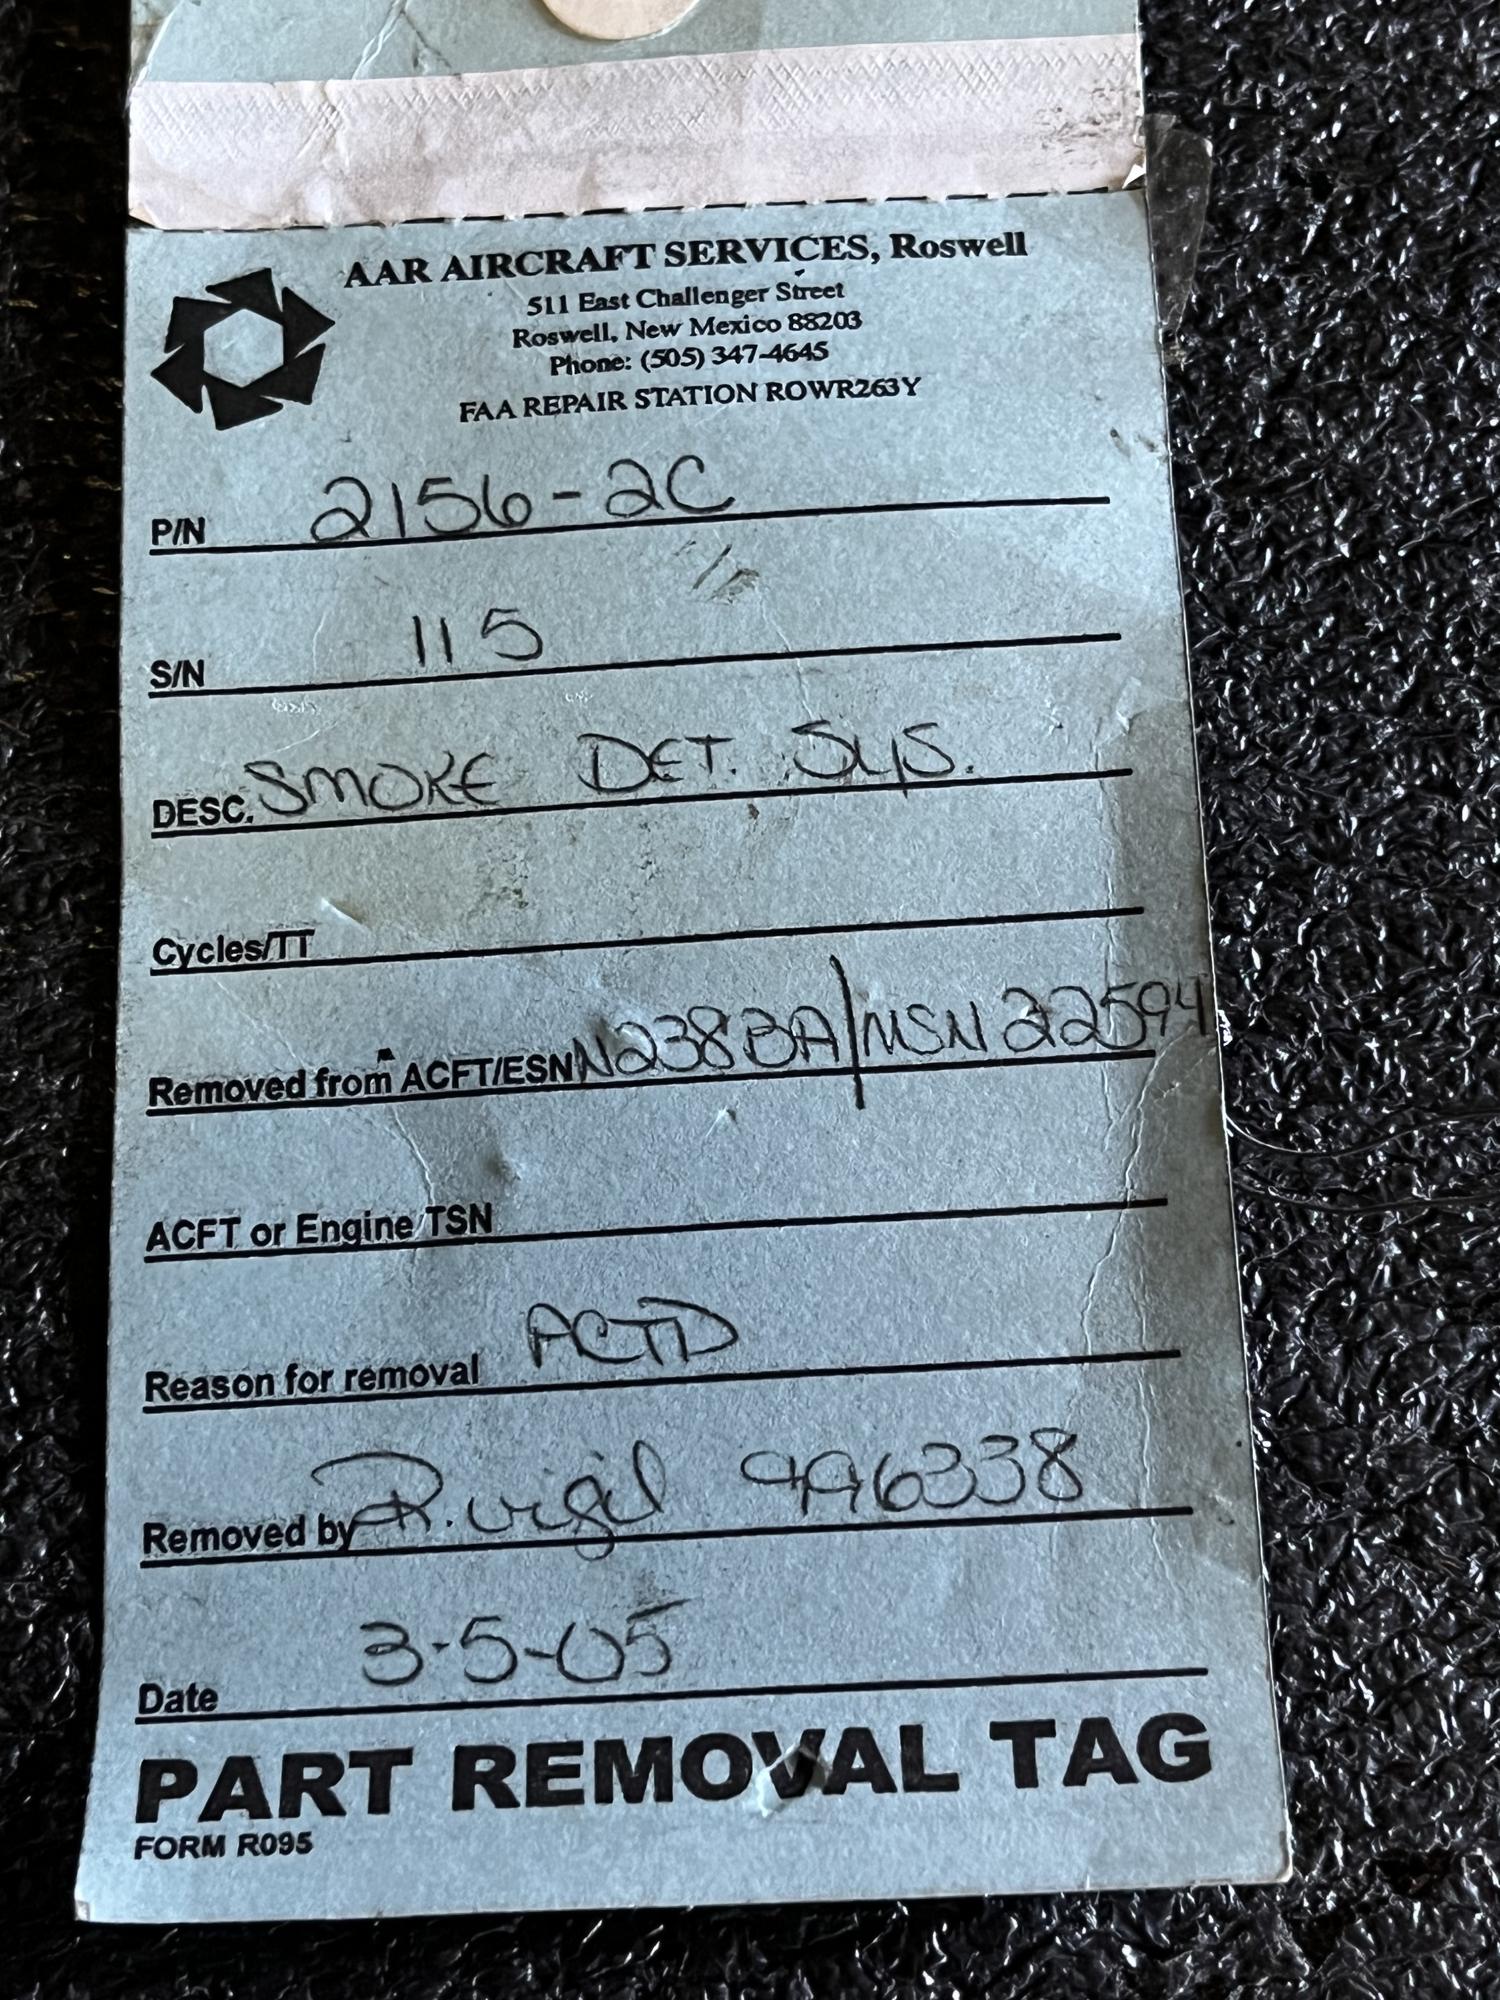 AAR AIRCRAFT SERVICES, Roswell
511 East Challenger Street
Roswell, New Mexico 88203
Phone: (505) 347-4645
FAA REPAIR STATION ROWR263Y
P/N 2156-2C
S/N 115
DESC. SMOKE DET. SYS.
Cycles/TT
Removed from ACFT/ESN N238BA/MSN 22594
ACFT or Engine TSN
Reason for removal ACTD
Removed by R. Virgil 996338
Date 3-5-05
PART REMOVAL TAG
FORM R095